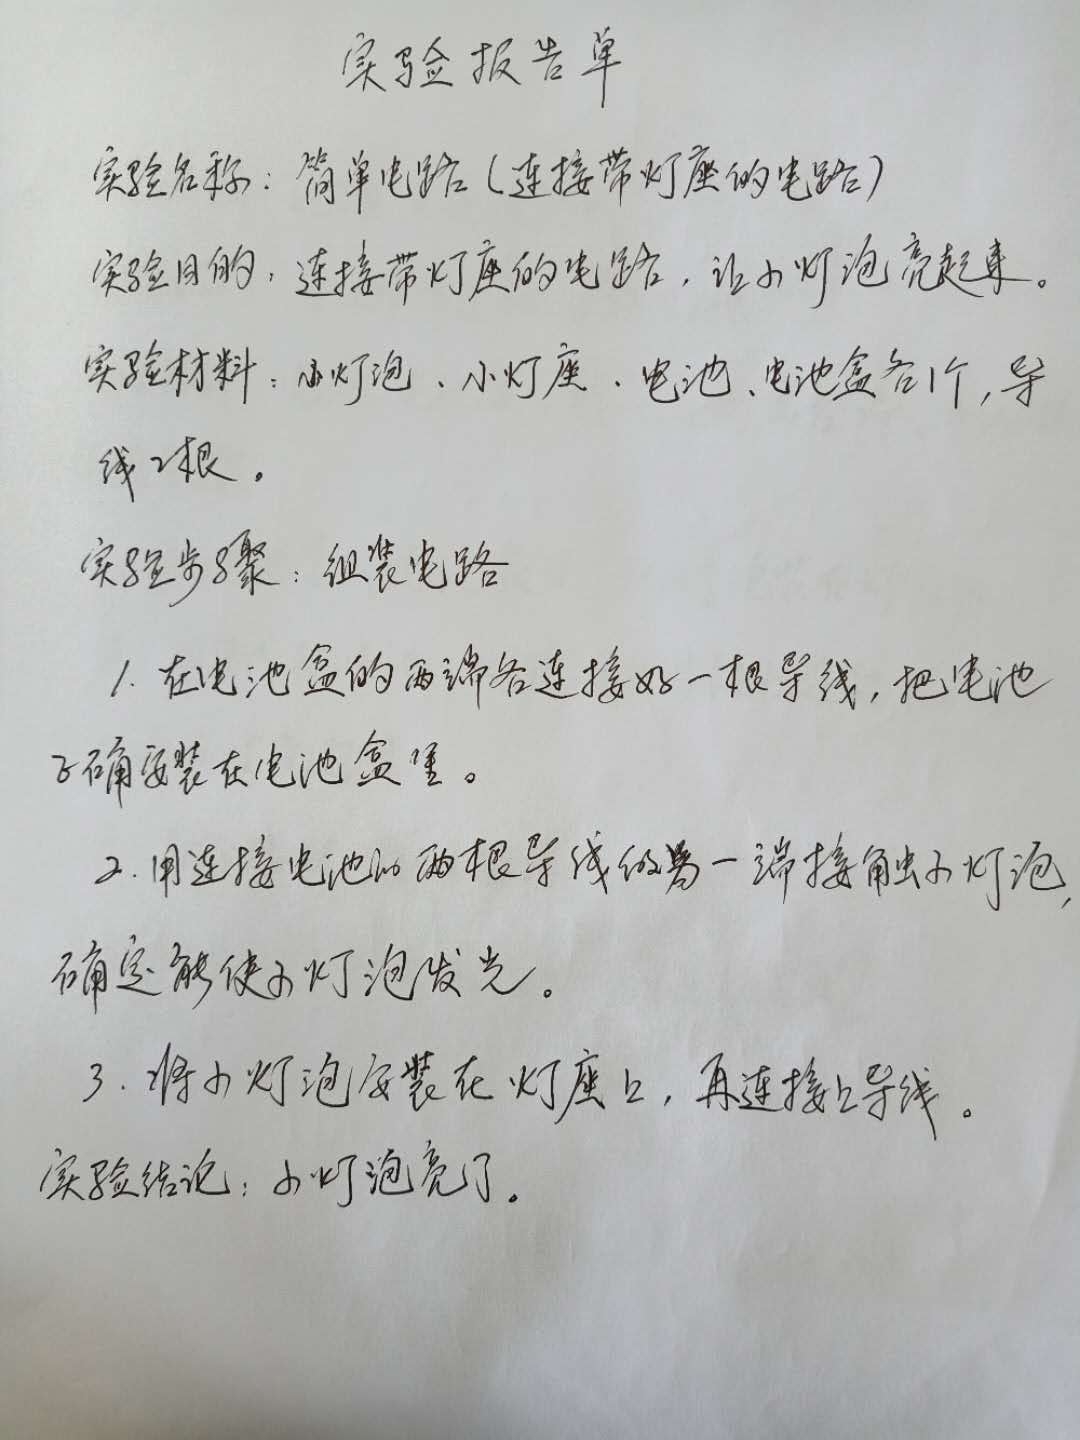 实验报告单
实验名称：简单电路（连接带灯座的电路）
实验目的：连接带灯座的电路，让小灯泡亮起来。
实验材料：小灯泡、小灯座、电池、电池盒各1个，导
线2根。
实验步骤：组装电路
1.在电池盒的两端各连接好一根导线，把电池
正确安装在电池盒里。
2.用连接电池的两根导线的另一端接触小灯泡，
确定能使小灯泡发光。
3.将小灯泡安装在灯座上，再连接上导线。
实验结论：小灯泡亮了。